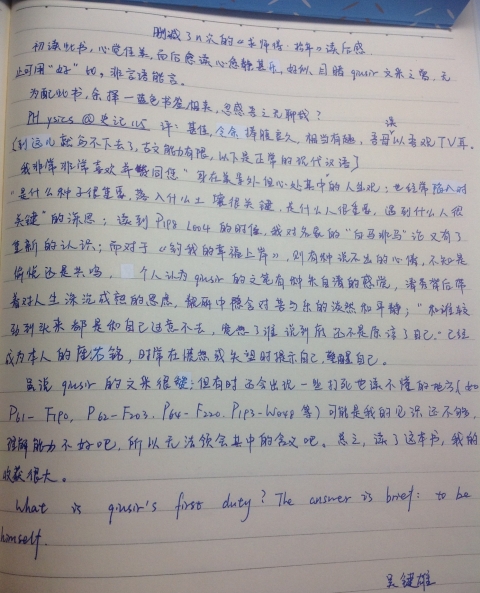 删减了n次的《求师得·拾年》读后感
初读此书,心觉佳美,而后愈读心愈静甚乐,好似目睹qiusir文采之富,无
止可用“好”切,非言语能言。
为配此书,余择一蓝色书签相夹,忽感吾之无聊哉?
PHysics @ 史记115 评:甚佳,令余捧腹良久,相当有趣,吾母误以吾观TV耳。
(到这儿就写不下去了,古文能力有限,以下是正常的现代汉语)
我非常非常喜欢并赞同您“身在某某外但心处其中”的人生观;也经常陷入对
“是什么种子很重要,落入什么土壤很关键,是什么人很重要,遇到什么人很
关键”的深思;读到P198 L004的时候,我对名家的“白马非马”论又有了
重新的认识;而对于《钓我的幸福上岸》,则有种说不出的心情,不知是
惋惜还是共鸣,个人认为qiusir的文笔有种朱自清的感觉,清秀背后带
着对人生深沉成熟的思虑,朦胧中隐含对苦与乐的淡然和平静;“和谁较
劲到头来都是和自己过意不去,宽恕了谁说到底还不是原谅了自己”已经
成为本人的座右铭,时常在愤怒或失望时提示自己,警醒自己。
虽说qiusir的文采很赞,但有时还会出现一些打死也读不懂的地方(如
P61-F190、P62-F203、P64-F220、P193-W048等)可能是我的见识还不够,
理解能力不好吧,所以无法领会其中的含义吧。总之,读了这本书,我的
收获很大。
What is qiusir's first duty? The answer is brief: to be
himself.
吴键雄